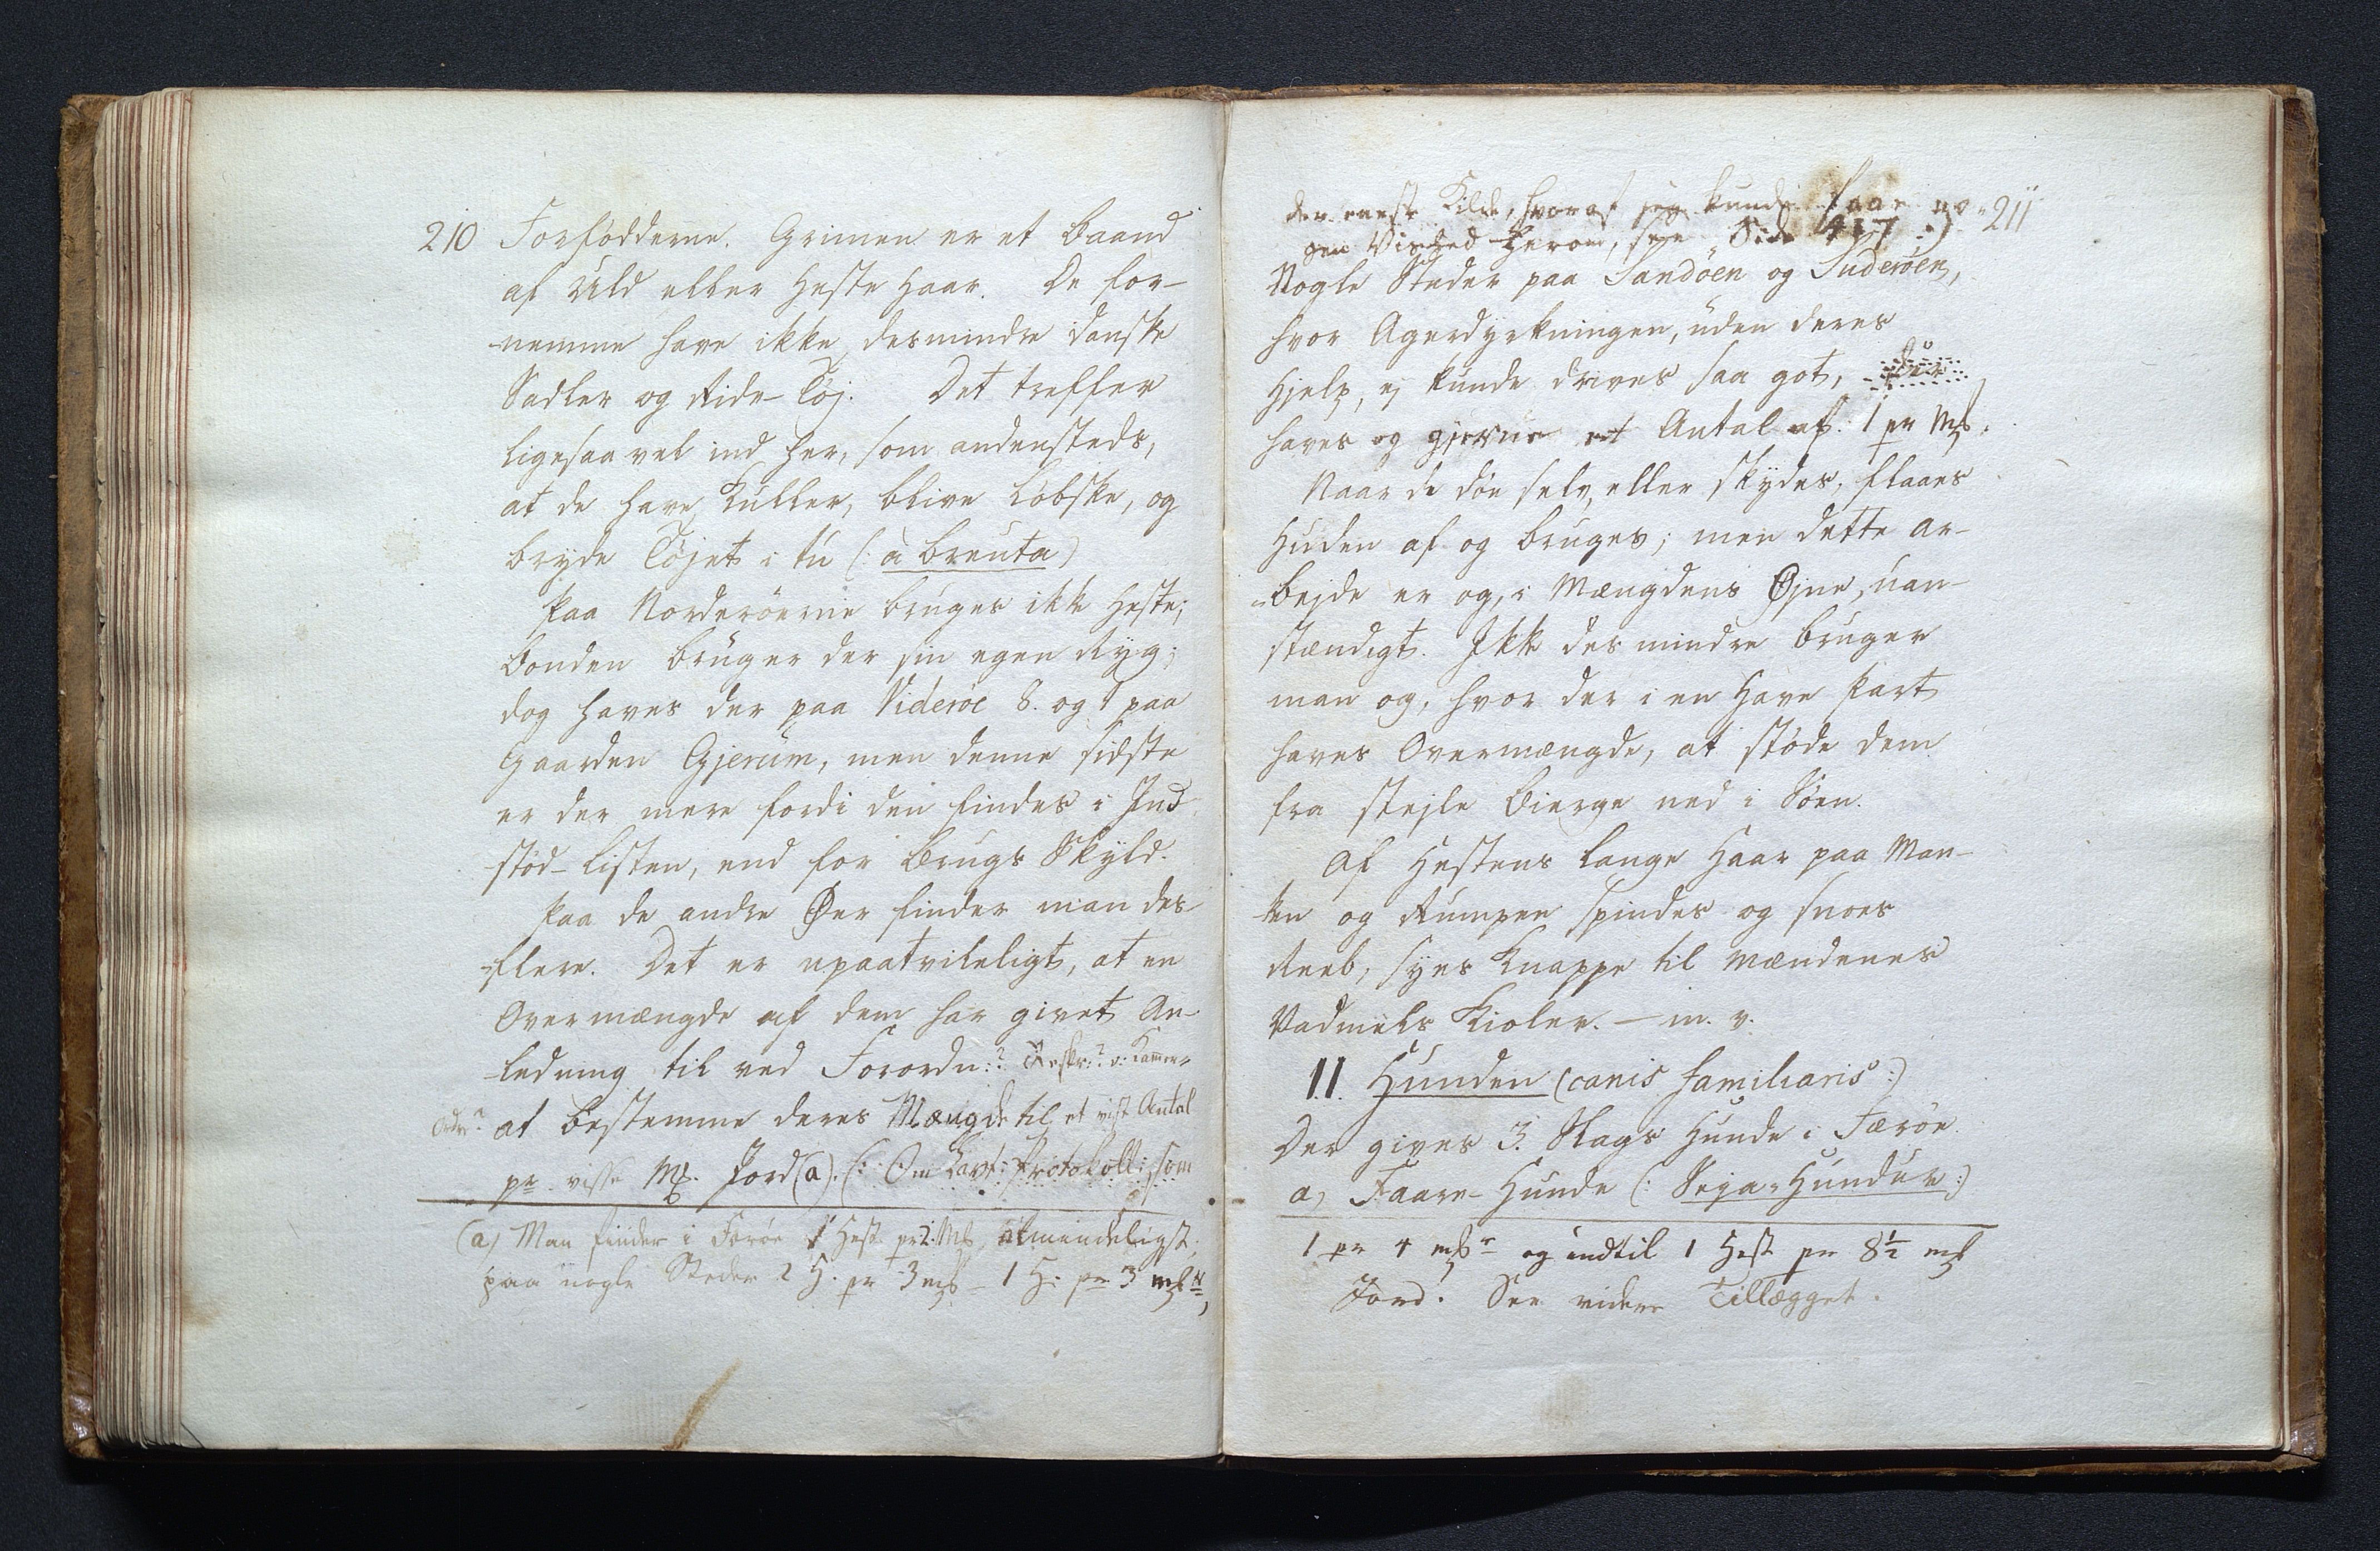 210 Forfødderne. Grimen er et Baand
af Uld eller Heste Haar. De for-
-nemme have ikke desmindre danske
Sadler og Ride-Tøj. Det treffer
ligesaa vel ind her, som andensteds,
at de have Kuller, blive løbske, og
bryde Tøjet i tu (: à breuta)
Paa Norderöerne bruges ikke Heste;
Bonden bruger der sin egen Ryg;
dog haves der paa Videröe 8. og 1 paa
Gaarden Gjerum, men denne sidste
er der mere fordi den findes i Ind-
stød-Listen, end for Brugs Skyld.
Paa de andre Øer finder man des
-flere. Det er upaatvileligt, at en
Overmængde af dem har givet An-
-ledning til ved Forordn:? Reskr:? v: Kammer-
Ordre? at bestemme deres Mængde til et vist Antal
pr visse Mk. Jord (a). (: Om Havf: Protokoll: som
(a) Man finder i Færöe 1 Hest pr 2. Mk almindeligst,
paa nogle Steder 2 H. pr 3 mk – 1 H: pr 3 mkr,
den eneste Kilde, hvoraf jeg kunde faae no- 211
gen Vished herom, see Side 417 :)
Nogle Steder paa Sandöen og Suderöen,
hvor Agerdyrkningen, uden deres
Hjelp, ej kunde drives saa got,
haves og gjerne et Antal af 1 pr Mk.
Naar de døe selv, eller skydes, flaaes
Huden af og bruges; men dette Ar-
-bejde er og, i Mængdens Øjne, uan-
stændigt. Ikke des mindre bruger
man og, hvor der i en Have Part
haves Overmængde, at støde dem
fra stejle Bierge ned i Søen.
Af Hestens lange Haar paa Man-
-ken og Rumpen spindes og snoes
Reeb, syes Knappe til Mændenes
Vadmels Kioler. – m. v.
11. Hunden (canis familiaris:)
Der gives 3. Slags Hunde i Færöe
a, Faare-Hunde (: Seja-Hundur :)
1 pr 4 mkr og indtil 1 Hest pr 8½ mk
Jord. See videre Tillægget.